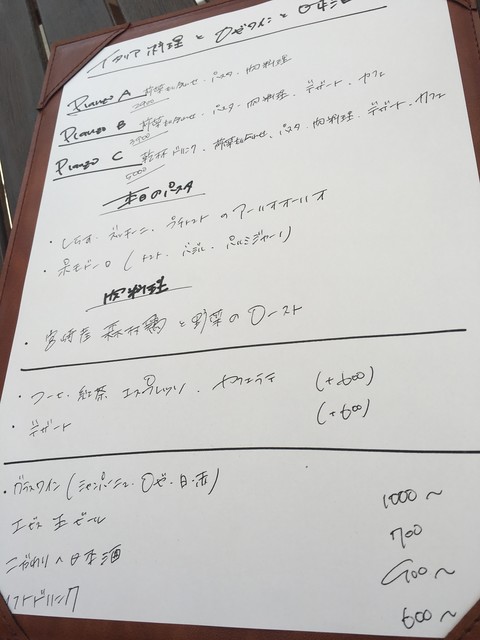 イタリア料理とロゼワインと日本酒
Pranzo A 前菜盛り合わせ、パスタ、肉料理
Pranzo B 前菜盛り合わせ、パスタ、肉料理、デザート、カフェ
3900
Pranzo C 乾杯ドリンク、前菜盛り合わせ、パスタ、肉料理、デザート、カフェ
5000
本日のパスタ
・しらす、ズッキーニ、プチトマトのアーリオオーリオ
・ポモドーロ(トマト、バジル、パルミジャーノ)
肉料理
・宮崎産 森林鶏と野菜のロースト
・コーヒー、紅茶、エスプレッソ、カフェラテ (+600)
・デザート (+600)
・グラスワイン(シャンパーニュ、ロゼ・白・赤) 1000~
エビス生ビール 700
こだわりの日本酒 900~
ソフトドリンク 600~